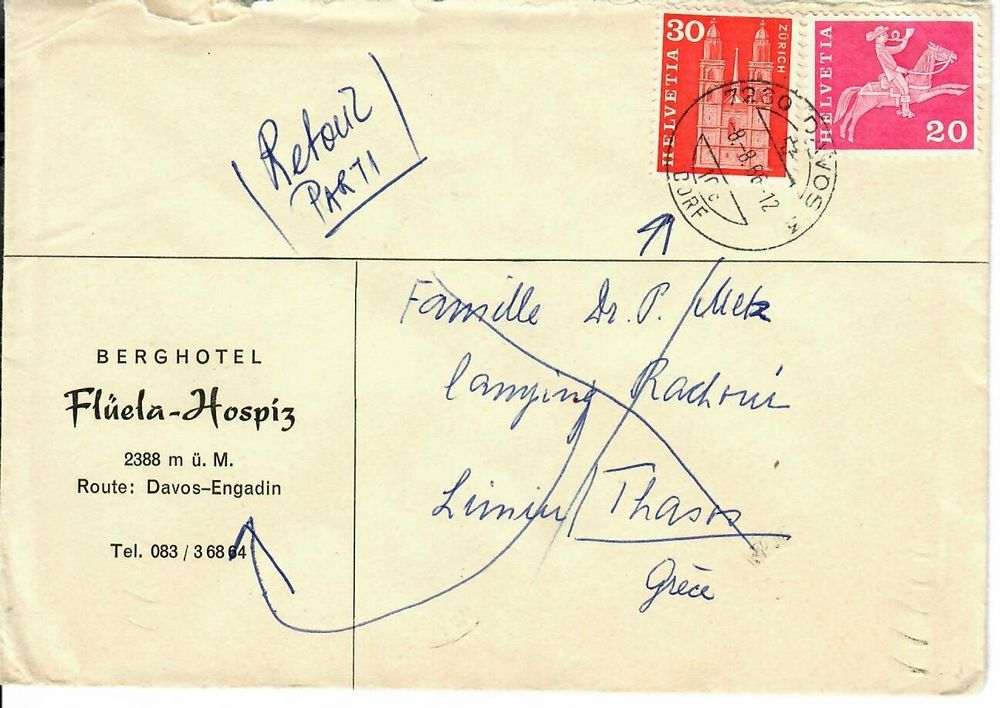 30
ZÜRICH
HELVETIA
HELVETIA
20
DAVOS
-8.-8.66-12
DORF
Retour
PARTI
BERGHOTEL
Flüela-Hospiz
2388 m ü. M.
Route: Davos–Engadin
Tel. 083 / 3 68 64
Famille Dr. P. Metz
Camping Rachoni
Limin / Thasos
Grèce